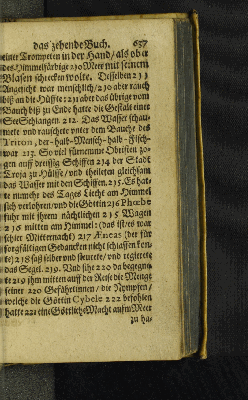 das zehende Buch. 637
einer Trompeten in der Hand/ als ob er
des Himmelfärbige 230 Meer mit seinem
Blasen schrecken wolte. Desselben 231
Angesicht war menschlich/ 230 aber rauch
biß an die Hüffte: 231 aber das übrige vom
Bauch biß zu Ende hatte die Gestalt einer
See Schlangen. 212. Das Wasser schau-
mete und rauschete unter dem Bauche des
Triton, der-halb-Mensch-halb-Fisch-
war 213. So viel fürneme Obristen zo-
gen auff dreissig Schiffen 214 der Stadt
Troja zu Hülffe/ und theileten gleichsam
das Wasser mit den Schiffen. 215. Es hat-
te numehr des Tages Liecht am Himmel
sich verlohren/ und die Göttin 216 Phœbe
fuhr mit ihrem nächtlichen 215 Wagen
216 mitten am Himmel: (das ist/ es war
schier Mitternacht) 217 Æneas (der für
sorgfältigen Gedancken nicht schlaffen kun-
te) 218 saß selber und steurete/ und regierete
das Segel. 219. Und sihe 220 da begegne-
te 219 ihm mitten auff der Reise die Menge
seiner 220 Gefährtinnen/ die Nymphen/
welche die Göttin Cybele 222 befohlen
hatte 221 eine Göttliche Macht auf'm Meer
zu ha-